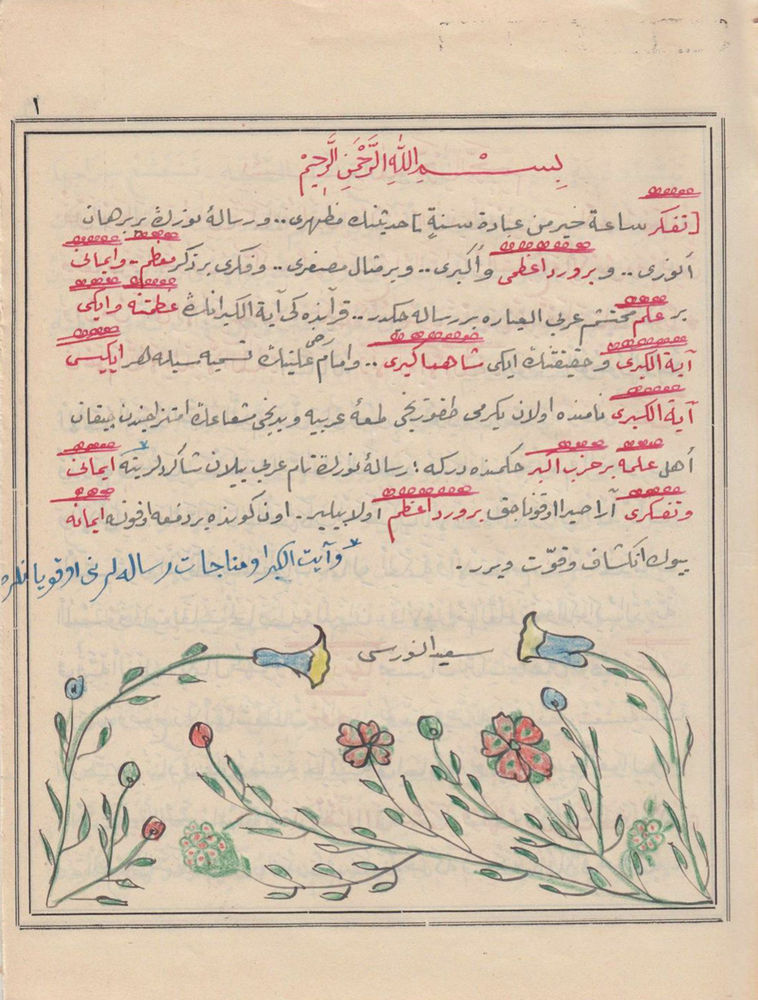 ١
بِسْمِ اللّٰهِ الرَّحْمٰنِ الرَّحِيمْ
[تفكر ساعة خير من عبادة سنةٍ] حديثنك مظهرى.. و رسالهٔ نورڭ بر برهان
أنورى.. و بر ورد اعظمى و أكبرى.. و بر مثال مصغرى.. و فكرى بر ذكر معظم.. و ايمانى
بر علم محتشم عربي العباره بر رساله جكدر.. قرآنده كى آية الكبرانڭ عظمتنه و ايكى
آية الكبرى و حقيقتنڭ ايكى شاهد اكبرى.. و امام علينڭ رض تسميه سيله هر ايكيسى
آية الكبرى نامنده اولان يكرمى طقوزنجى لمعهٔ عربيه و يدنجى شعاعڭ امتزاجندن چيقان
أهل علمه بر حزب اكبر حكمنده دركه؛ رسالهٔ نورڭ تام عربي بيلن شاكردلرينه ايمانى
و تفكرى آرا صيرا اوقوناجق بر ورد اعظم اولا بيلير.. اون كونده بر دفعه اوقونسه ايمانه
بيوك انكشاف و قوّت ويرر..
و آيت الكبرا و مناجات رساله لرينى اوقويانلره
سعيد النورسى